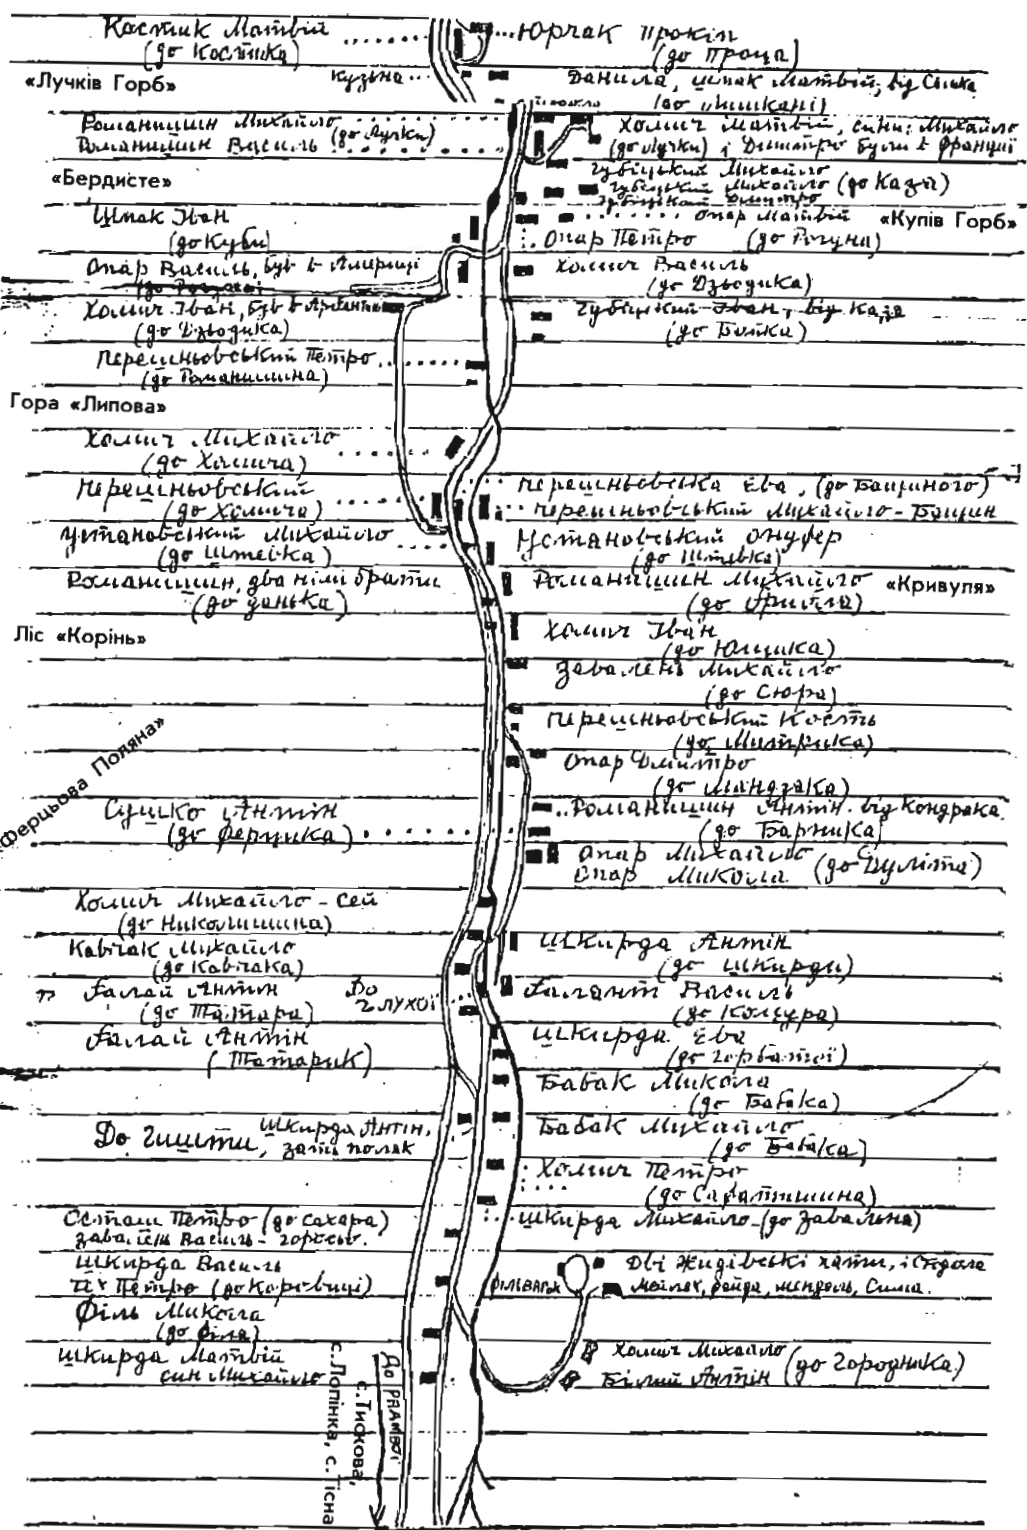 Костик Матвій
(до Костика)
Юрчак Прокіп
(до Проца)
«Лучків Горб»
кузьна
Данила, Шпак Матвій, від
(до
Романишин Михайло
Романишин Василь
(до Лучки)
Холич Матвій, сини: Михайло
(до Лучки) і Дмитро були в Франції
«Бердисте»
Губіцький Михайло
Губіцький Михайло (до Казі)
Губіцький Дмитро
Шпак Іван
(до Куби)
Опар Матвій
«Купів Горб»
Опар Петро
(до Рогуна)
Опар Василь, був в Америці
Холич Василь
(до Дзьодика)
Холич Іван, був в Аргентині
(до Дзьодика)
Губіцкий Іван, від Каза
(до Бойка)
Перешньовський Петро
(до Романишина)
Гора «Липова»
Холич Михайло
(до Холича)
Перешньовський
(до Холича)
Перешньовська Ева, (до Бащиного)
Перешньовський Михайло-Бащин
Установський Михайло
(до Штевка)
Установський Онуфер
(до Штевка)
Романишин, два німі брати
(до Данька)
Романишин Михайло
«Кривуля»
Ліс «Корінь»
Холич Іван
(до Ющика)
Завалень Михайло
(до Сюра)
Перешньовський Кость
(до Митрика)
«Ферцьова Поляна»
Опар Дмитро
(до Мандзака)
Сушко Антін
(до Ферцика)
Романишин Антін від Кондрака
(до Барника)
Опар Михайло
Опар Микола
(до Суліта)
Холич Михайло - Сей
(до Николишина)
Кавчак Михайло
(до Кавчака)
Шкирда Антін
(до Шкирди)
Ґалай Антін
(до Татара)
До
Глухої
Ґалант Василь
(до Коцура)
Ґалай Антін
(Татарик)
Шкирда Ева
(до Горбатої)
Бабак Микола
(до Бабака)
До Гишти,
Шкирда Антін,
зать поляк
Бабак Михайло
(до Бабака)
Холич Петро
(до Саратишина)
Осташ Петро (до Сахара)
Завалень Василь -
Шкирда Михайло-(до Завальна)
Шкирда Василь
їх Петро (до Коровиці)
фільварок
Дві жидівські хати, і стодола
Мойлах, Файда, Мендель, Сима.
Філь Микола
(до Філя)
Шкирда Матвій
син Михайло
Холич Михайло
Білий Антін
(до Городника)
До
с. Тискова,
с. Лопінка, с. Тісна